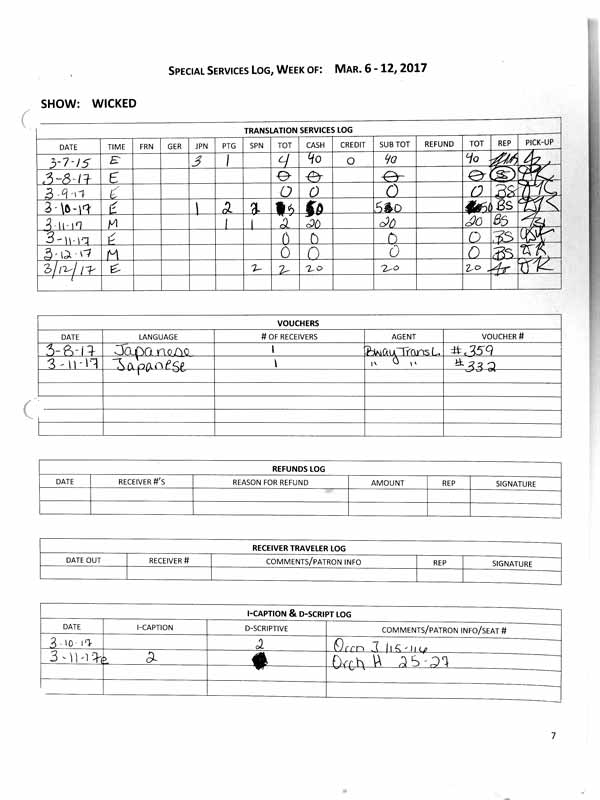 SPECIAL SERVICES LOG, WEEK OF: MAR. 6 - 12, 2017
SHOW: WICKED
TRANSLATION SERVICES LOG
DATE TIME FRN GER JPN PTG SPN TOT CASH CREDIT SUB TOT REFUND TOT REP PICK-UP
3-7-15 E 3 1 4 40 0 40 40
3-8-17 E 0 0 0 0
3-9-17 E 0 0 0 0 BS
3-10-17 E 1 2 2 5 50 50 50 BS
3-11-17 M 1 1 2 20 20 20 BS
3-11-17 E 0 0 0 0 BS
3-12-17 M 0 0 0 0 BS JK
3/12/17 E 2 2 20 20 20 JK
VOUCHERS
DATE LANGUAGE # OF RECEIVERS AGENT VOUCHER #
3-8-17 Japanese 1 Bway Transl. #.359
3-11-17 Japanese 1 " " #332
REFUNDS LOG
DATE RECEIVER #'S REASON FOR REFUND AMOUNT REP SIGNATURE
RECEIVER TRAVELER LOG
DATE OUT RECEIVER # COMMENTS/PATRON INFO REP SIGNATURE
I-CAPTION & D-SCRIPT LOG
DATE I-CAPTION D-SCRIPTIVE COMMENTS/PATRON INFO/SEAT #
3-10-17 2 Orch J 115-116
3-11-17e 2 Orch H 25-27
7